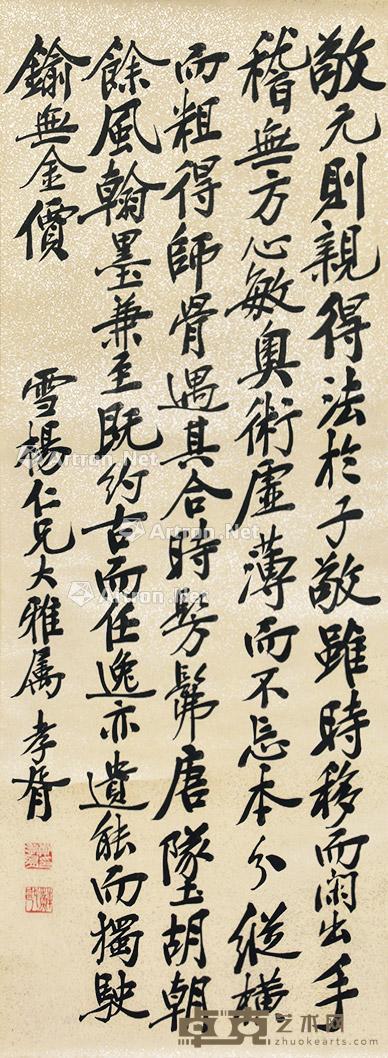 敬元則親得法於子敬雖時移而閑出手
稽無方心敏奧術虛薄而不忘本分縱橫
而粗得師骨遇其合時髣髴唐墜胡朝
餘風翰墨兼至既約古而任逸亦遺能而獨駛
鍮無金價
雪楊仁兄大雅属 孝胥
Artron.Net
卓克艺术网
www.zhuokearts.com